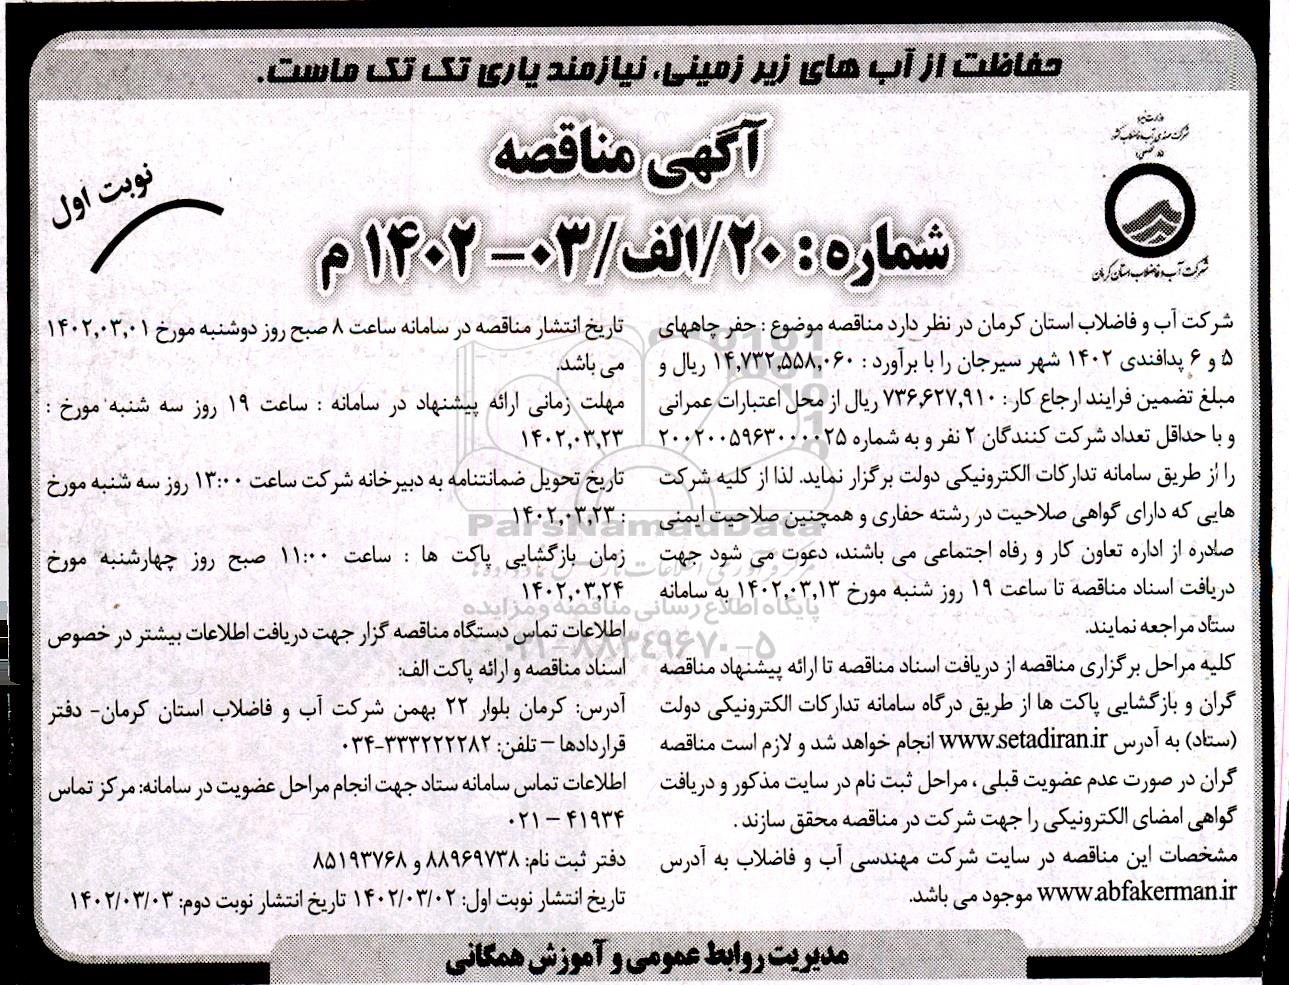 حفاظت از آب های زیر زمینی، نیازمند یاری تک تک ماست.
آگهی مناقصه
شماره: ۲۰/الف/۰۳- ۱۴۰۲ م
نوبت اول
وزارت نیرو
شرکت مهندسی آب و فاضلاب کشور
شرکت آب و فاضلاب استان کرمان
شرکت آب و فاضلاب استان کرمان در نظر دارد مناقصه موضوع : حفر چاههای
۵ و ۶ پدافندی ۱۴۰۲ شهر سیرجان را با برآورد : ۱۴,۷۳۲,۵۵۸,۰۶۰ ریال و
مبلغ تضمین فرایند ارجاع کار: ۷۳۶,۶۲۷,۹۱۰ ریال از محل اعتبارات عمرانی
و با حداقل تعداد شرکت کنندگان ۲ نفر و به شماره ۲۰۰۲۰۰۵۹۶۳۰۰۰۰۲۵
را از طریق سامانه تدارکات الکترونیکی دولت برگزار نماید. لذا از کلیه شرکت
هایی که دارای گواهی صلاحیت در رشته حفاری و همچنین صلاحیت ایمنی
صادره از اداره تعاون کار و رفاه اجتماعی می باشند، دعوت می شود جهت
دریافت اسناد مناقصه تا ساعت ۱۹ روز شنبه مورخ ۱۴۰۲,۰۳,۱۳ به سامانه
ستاد مراجعه نمایند.
کلیه مراحل برگزاری مناقصه از دریافت اسناد مناقصه تا ارائه پیشنهاد مناقصه
گران و بازگشایی پاکت ها از طریق درگاه سامانه تدارکات الکترونیکی دولت
(ستاد) به آدرس www.setadiran.ir انجام خواهد شد و لازم است مناقصه
گران در صورت عدم عضویت قبلی ، مراحل ثبت نام در سایت مذکور و دریافت
گواهی امضای الکترونیکی را جهت شرکت در مناقصه محقق سازند .
مشخصات این مناقصه در سایت شرکت مهندسی آب و فاضلاب به آدرس
www.abfakerman.ir موجود می باشد.
تاریخ انتشار مناقصه در سامانه ساعت ۸ صبح روز دوشنبه مورخ ۱۴۰۲,۰۳,۰۱
می باشد.
مهلت زمانی ارائه پیشنهاد در سامانه : ساعت ۱۹ روز سه شنبه مورخ :
۱۴۰۲,۰۳,۲۳
تاریخ تحویل ضمانتنامه به دبیرخانه شرکت ساعت ۱۳:۰۰ روز سه شنبه مورخ
: ۱۴۰۲,۰۳,۲۳
زمان بازگشایی پاکت ها : ساعت ۱۱:۰۰ صبح روز چهارشنبه مورخ
۱۴۰۲,۰۳,۲۴
اطلاعات تماس دستگاه مناقصه گزار جهت دریافت اطلاعات بیشتر در خصوص
اسناد مناقصه و ارائه پاکت الف:
آدرس: کرمان بلوار ۲۲ بهمن شرکت آب و فاضلاب استان کرمان- دفتر
قراردادها – تلفن: ۳۳۳۲۲۲۲۸۲-۰۳۴
اطلاعات تماس سامانه ستاد جهت انجام مراحل عضویت در سامانه: مرکز تماس
۴۱۹۳۴ – ۰۲۱
دفتر ثبت نام: ۸۸۹۶۹۷۳۸ و ۸۵۱۹۳۷۶۸
تاریخ انتشار نوبت اول: ۱۴۰۲/۰۳/۰۲ تاریخ انتشار نوبت دوم: ۱۴۰۲/۰۳/۰۳
مدیریت روابط عمومی و آموزش همگانی
ParsNamadData
پایگاه اطلاع رسانی مناقصه و مزایده
۰۲۱-۸۸۳۴۹۶۷۰-۵